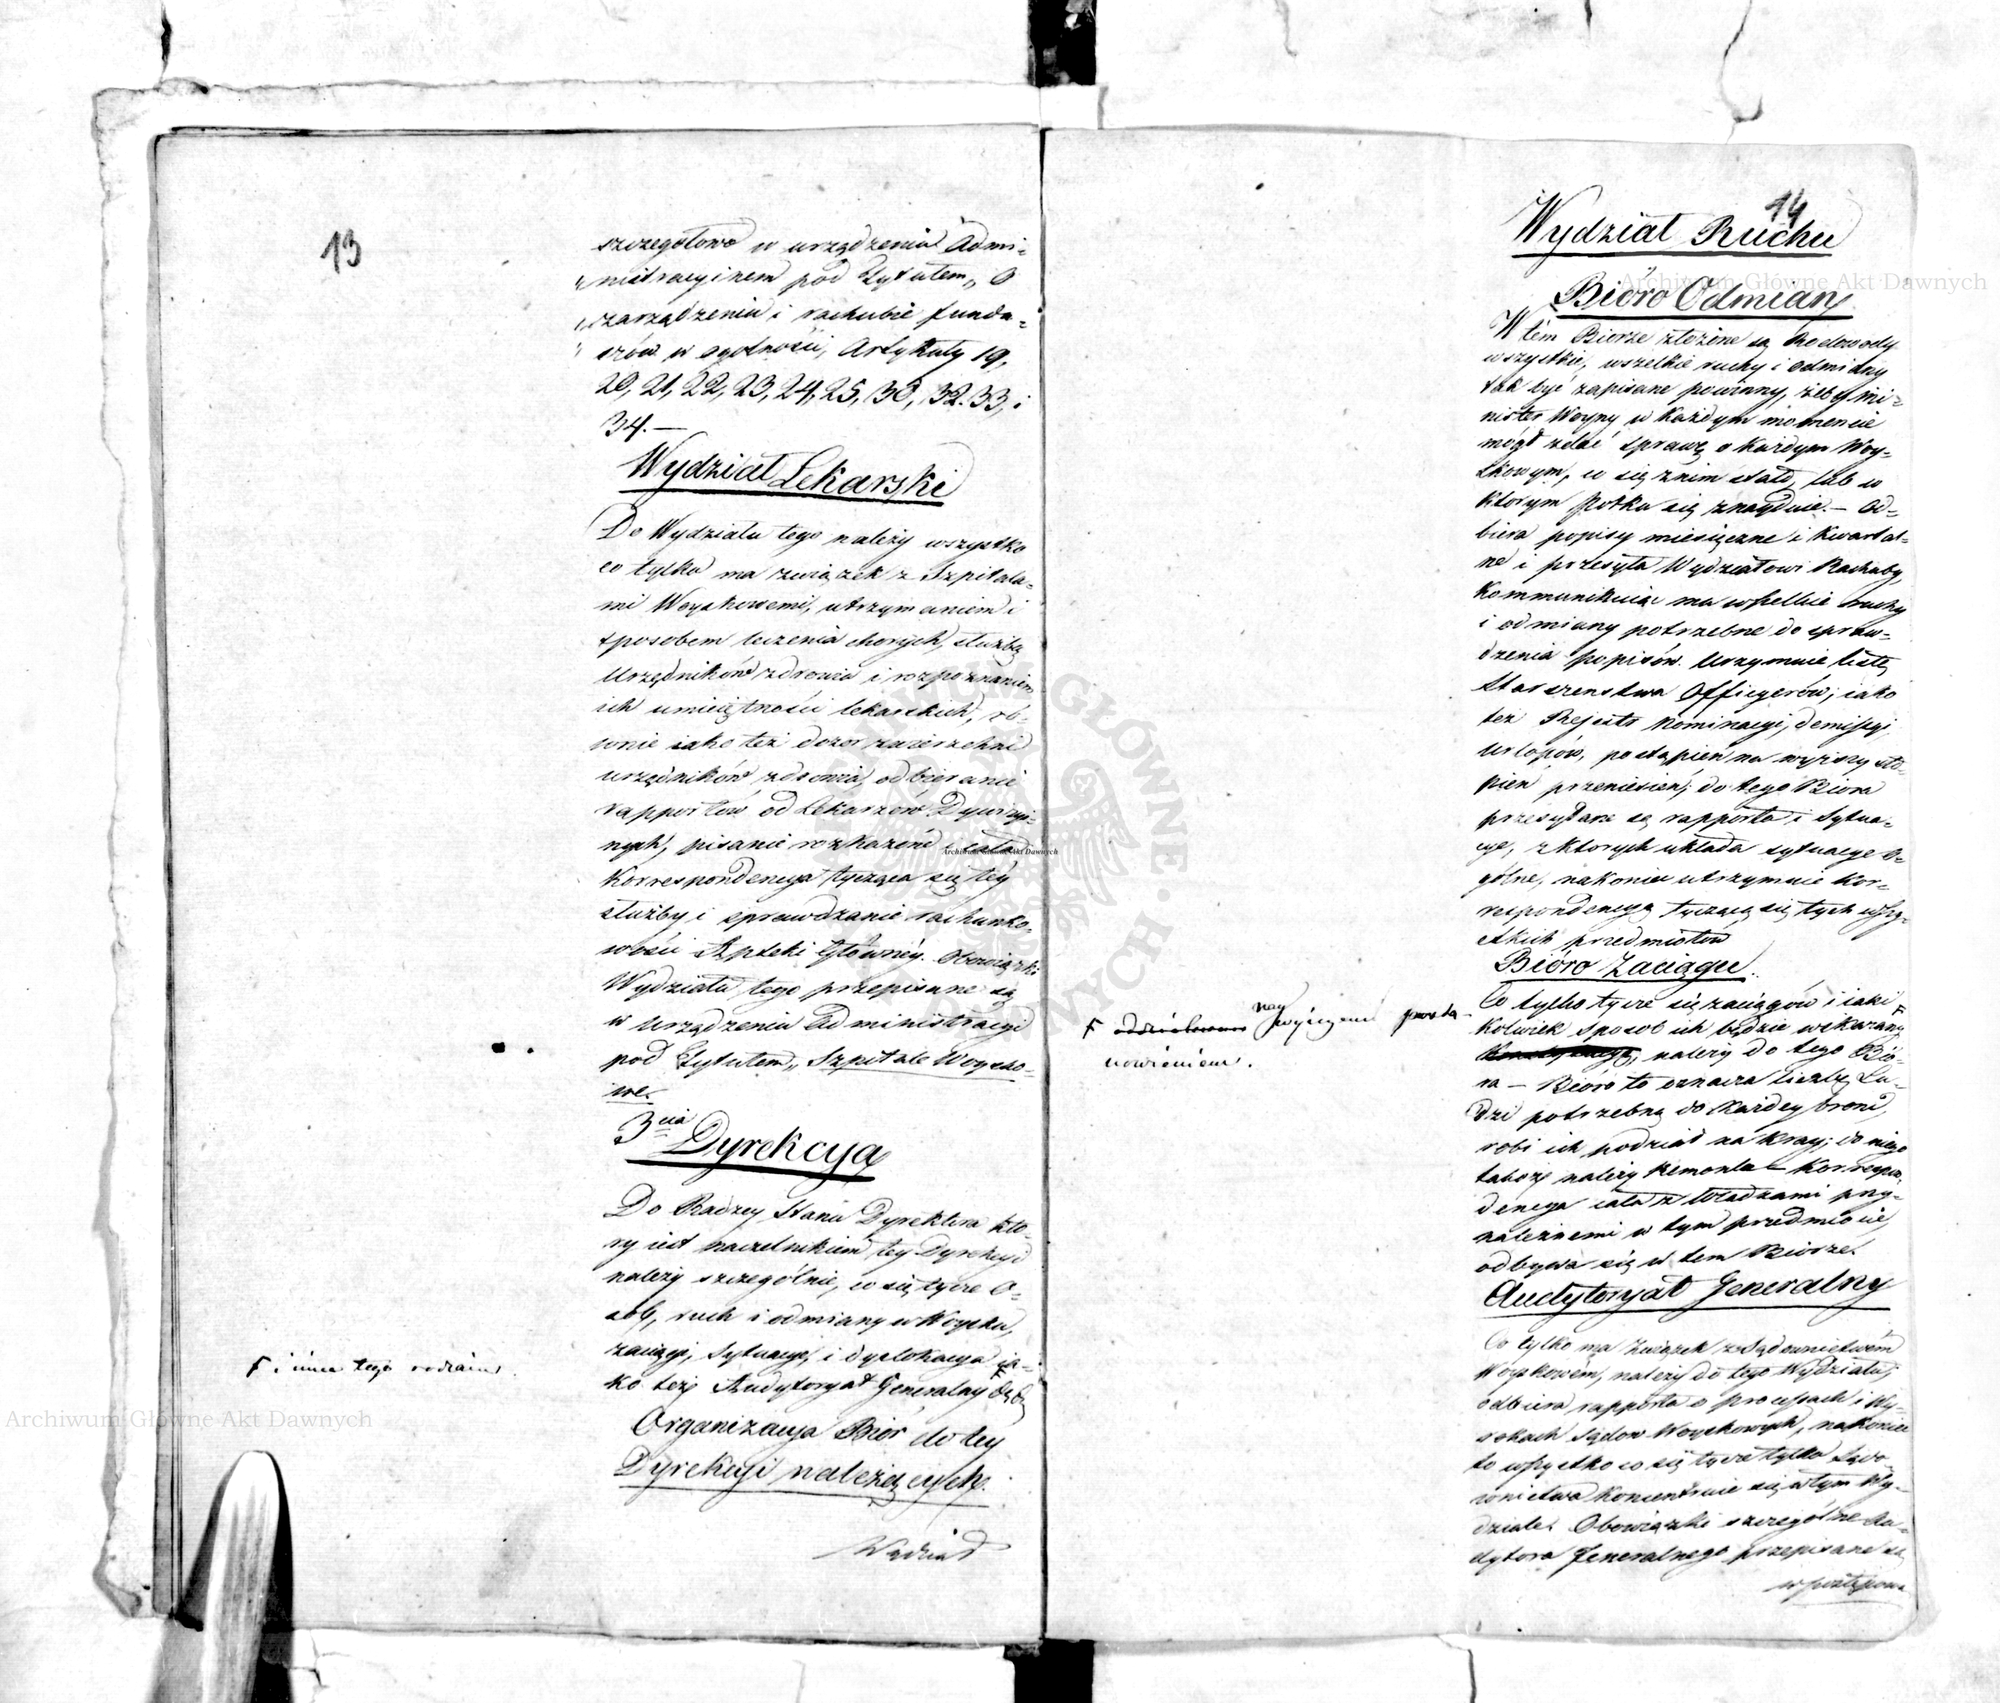 13
szczegółowo w urządzeniu Admi-
nistracyinem pod Tytułem „O
zarządzeniu i rachubie fundu-
szów w ogólności, Artykuły 19,
20, 21, 22, 23, 24, 25, 30, 32. 33, i
34.—
Wydział Lekarski
Do Wydziału tego należy wszystko
co tylko ma związek z Szpitala-
mi Woyskowemi, utrzymaniem i
sposobem leczenia chorych, służbą
Urzędników zdrowia i rozpoznaniem
ich umieiętności lekarskich, ró-
wnie iako też dozor zwierzchni
urzędników zdrowia, odbieranie
rapportów od Lekarzow Dywizyi-
nych, pisanie rozkazów i cała
Korrespondencya tycząca się tey
służby i sprawdzanie rachunko-
wości Apteki Główney. Obowiązki
Wydziału tego przepisane są
w Urządzeniu Administracyi
pod Tytułem „Szpitale Woysko-
we.
3cia Dyrekcya
Do Radzcy Stanu Dyrektora któ-
ry iest naczelnikiem tey Dyrekcyi
należy szczególnie, co się tycze O-
sób, ruch i odmiany w Woysku,
zaciągi, Sytuacye, i dyslokacya ia-
ko też Audytoryat Generalny
F i inne tego rodzaiu.
Organizacya Biór do tey
Dyrekcyi należących.
Wydział
14
Wydział Ruchu
Bióro Odmian
W tém Biorze złożone są Rodowody
wszystkie, wszelkie ruchy i odmiany
tak być zapisane powinny, żeby Mi-
nister Woyny w każdym momencie
mógł zdać sprawę o każdym Woy-
skowym, co się z nim stało, lub w
ktorym Półku się znayduie.— Od-
biera popisy miesięczne i kwartal-
ne i przesyła Wydziałowi Rachuby,
Kommunikuiąc mu wszelkie ruchy
i odmiany potrzebne do spraw-
dzenia popisów. Utrzymuie listę
Starszeństwa Officyerów; iako
też Rejestr Nominacyi, demissyi,
Urlopów, postąpień na wyższy sto-
pień przeniesień; do tego Bióra
przesyłane są rapporta i Sytua-
cye, z ktorych układa sytuacye O-
gólne, nakoniec utrzymuie Kor-
respondencyą tyczącą się tych wszy-
stkich przedmiotów
Bióro Zaciągu.
Co tylko tycze się zaciągów i iaki
kolwiek sposob ich będzie wskazany F
należy do tego Bió-
ra — Bióro to oznacza liczbę Lu-
dzi potrzebną do każdey broni,
robi ich podział na kray; do niego
także należy remonta — Korrespon-
dencya cała z Władzami przy-
należnemi w tym przedmiocie,
odbywa się w tem Biorze.
F nay wyższym posta-
nowieniem.
Audytoryat Generalny
Co tylko ma Związek z Sądownictwem
Woyskowém, należy do tego Wydziału;
odbiera rapporta o processach i Wy-
rokach Sądow Woyskowych, nakoniec
to wszystko co się tycze tylko Sądo-
wnictwa koncentruie się w tym Wy-
dziale. Obowiązki szczególne Au-
dytora Generalnego przepisane są
w postępowa-
Archiwum Główne Akt Dawnych
Archiwum Główne Akt Dawnych
Archiwum Główne Akt Dawnych